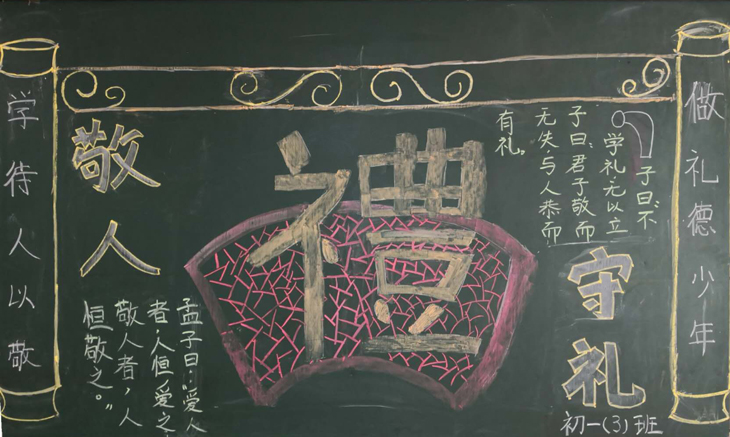 做礼德少年
子曰:不
学礼,无以立
子曰:君子敬而
无失与人恭而
有礼。
守礼
禮
敬人
孟子曰:“爱人
者,人恒爱之
敬人者,人
恒敬之。”
学待人以敬
初一(3)班